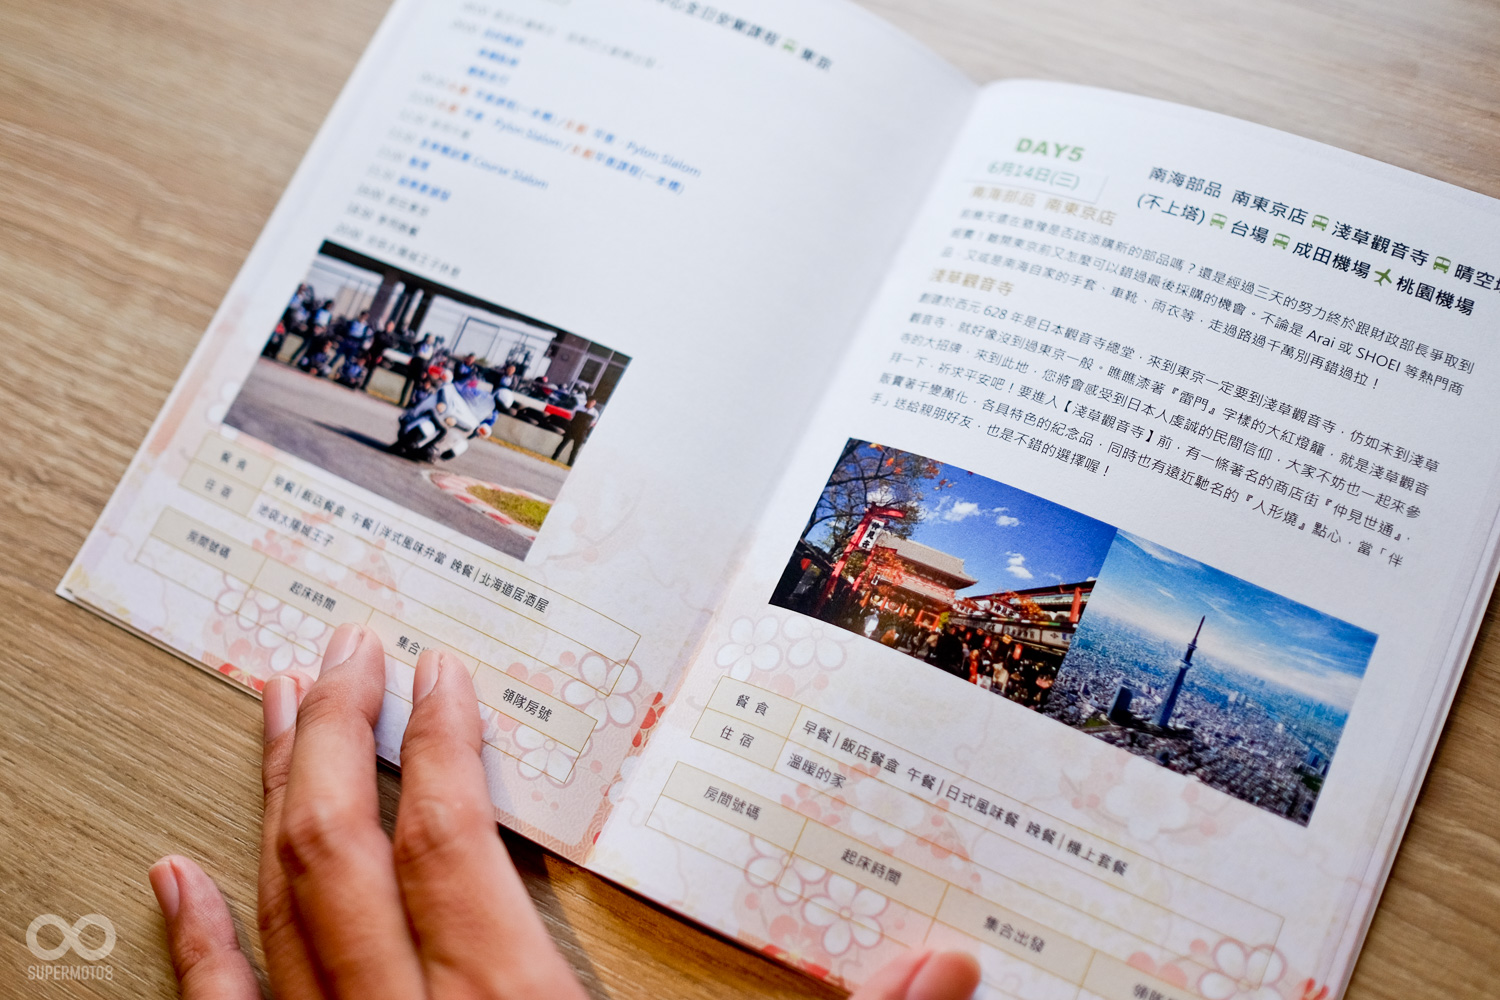 全日安駕課程 東京
平衡課程(一本橋) / 平衡、Pylon Slalom
Pylon Slalom / 平衡課程(一本橋)
Course Slalom
餐 食
早餐|飯店餐盒 午餐|洋式風味弁當 晚餐|北海道居酒屋
住 宿
池袋太陽城王子
房間號碼
起床時間
集合出
領隊房號
DAY5
6月14日(三)
南海部品 南東京店 淺草觀音寺 晴空塔
(不上塔) 台場 成田機場 桃園機場
南海部品 南東京店
前幾天還在猶豫是否該添購新的部品嗎？還是經過三天的努力終於跟財政部長爭取到
經費！離開東京前又怎麼可以錯過最後採購的機會。不論是 Arai 或 SHOEI 等熱門商
品，又或是南海自家的手套、車靴、雨衣等，走過路過千萬別再錯過拉！
淺草觀音寺
創建於西元 628 年是日本觀音寺總堂，來到東京一定要到淺草觀音寺，仿如未到淺草
觀音寺，就好像沒到過東京一般。瞧瞧漆著『雷門』字樣的大紅燈籠，就是淺草觀音
寺的大招牌，來到此地，您將會感受到日本人虔誠的民間信仰，大家不妨也一起來參
拜一下，祈求平安吧！要進入【淺草觀音寺】前，有一條著名的商店街『仲見世通』，
販賣著千變萬化，各具特色的紀念品，同時也有遠近馳名的『人形燒』點心，當「伴
手」送給親朋好友，也是不錯的選擇喔！
餐 食
早餐|飯店餐盒 午餐|日式風味餐 晚餐|機上套餐
住 宿
溫暖的家
房間號碼
起床時間
集合出發
領隊
SUPERMOTO8